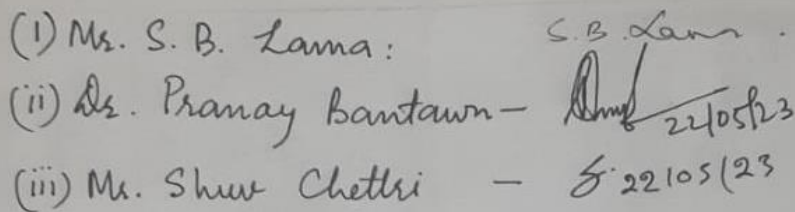 (i) Mr. S. B. Lama: S. B. Lama.
(ii) Dr. Pranay Bantawn - 22/05/23
(iii) Mr. Shuv Chettri - 22/05/23